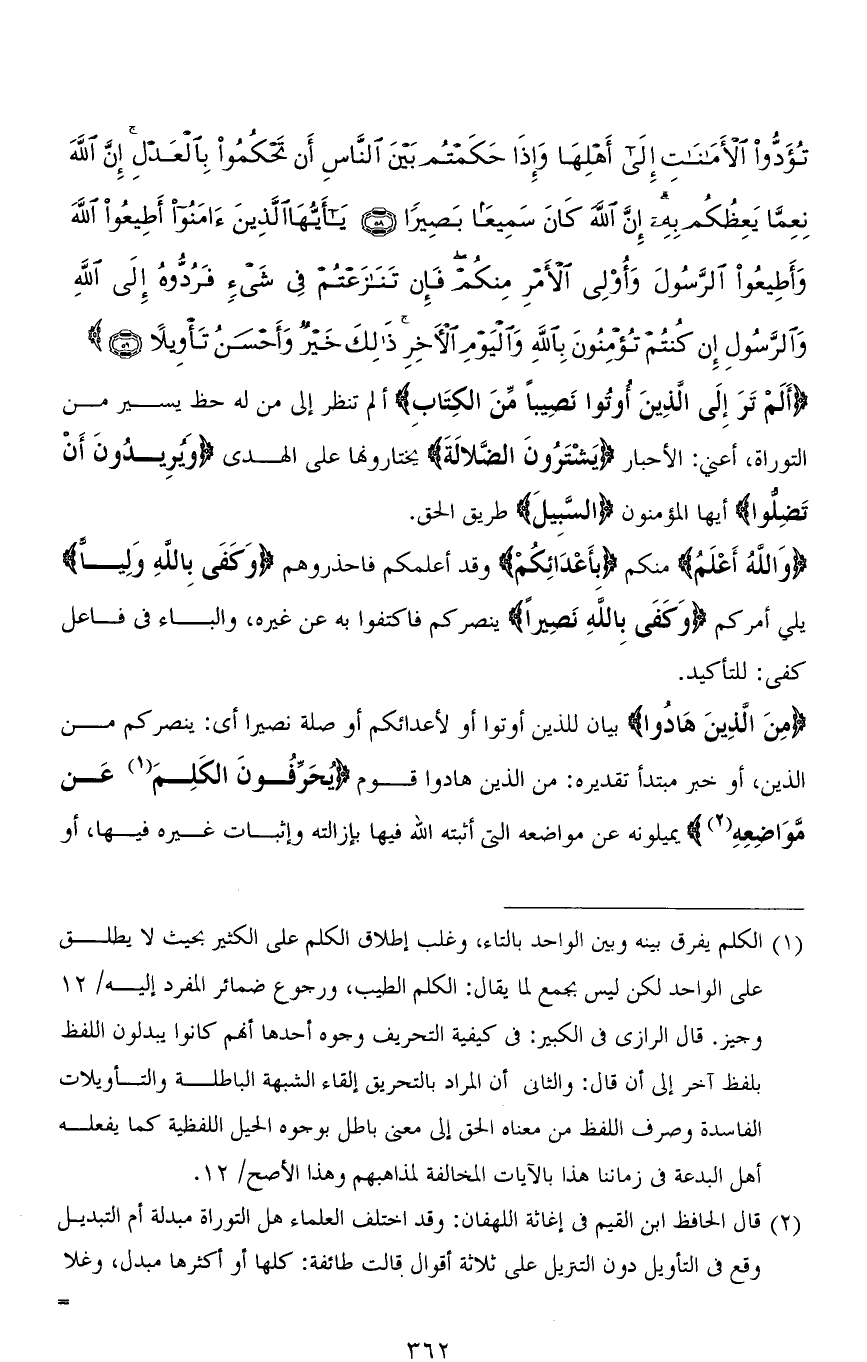 تُؤَدُّواْ ٱلْأَمَـٰنَـٰتِ إِلَىٰٓ أَهْلِهَا وَإِذَا حَكَمْتُم بَيْنَ ٱلنَّاسِ أَن تَحْكُمُواْ بِٱلْعَدْلِ ۚ إِنَّ ٱللَّهَ
نِعِمَّا يَعِظُكُم بِهِۦٓ ۗ إِنَّ ٱللَّهَ كَانَ سَمِيعًۢا بَصِيرًا ۝٥٨ يَـٰٓأَيُّهَا ٱلَّذِينَ ءَامَنُوٓاْ أَطِيعُواْ ٱللَّهَ
وَأَطِيعُواْ ٱلرَّسُولَ وَأُوْلِى ٱلْأَمْرِ مِنكُمْ ۖ فَإِن تَنَـٰزَعْتُمْ فِى شَىْءٍ فَرُدُّوهُ إِلَى ٱللَّهِ
وَٱلرَّسُولِ إِن كُنتُمْ تُؤْمِنُونَ بِٱللَّهِ وَٱلْيَوْمِ ٱلْأَخِرِ ۚ ذَٰلِكَ خَيْرٌ وَأَحْسَنُ تَأْوِيلًا ۝٥٩ ﴾
﴿أَلَمْ تَرَ إِلَى الَّذِينَ أُوتُوا نَصِيباً مِّنَ الكِتَابِ﴾ ألم تنظر إلى من له حظ يسير من
التوراة، أعني: الأحبار ﴿يَشْتَرُونَ الضَّلالَةَ﴾ يختارونها على الهدى ﴿وَيُرِيدُونَ أَنْ
تَضِلُّوا﴾ أيها المؤمنون ﴿السَّبِيلَ﴾ طريق الحق.
﴿وَاللَّهُ أَعْلَمُ﴾ منكم ﴿بِأَعْدَائِكُمْ﴾ وقد أعلمكم فاحذروهم ﴿وَكَفَى بِاللَّهِ وَلِياًّ﴾
يلي أمركم ﴿وَكَفَى بِاللَّهِ نَصِيراً﴾ ينصركم فاكتفوا به عن غيره، والباء فى فاعل
كفى: للتأكيد.
﴿مِنَ الَّذِينَ هَادُوا﴾ بيان للذين أوتوا أو لأعدائكم أو صلة نصيرا أى: ينصركم من
الذين، أو خبر مبتدأ تقديره: من الذين هادوا قوم ﴿يُحَرِّفُونَ الكَلِمَ(١) عَن
مَّوَاضِعِهِ(٢)﴾ يميلونه عن مواضعه التى أثبته الله فيها بإزالته وإثبات غيره فيها، أو
(١) الكلم يفرق بينه وبين الواحد بالتاء، وغلب إطلاق الكلم على الكثير بحيث لا يطلق
على الواحد لكن ليس بجمع لما يقال: الكلم الطيب، ورجوع ضمائر المفرد إليه/ ١٢
وجيز. قال الرازى فى الكبير: فى كيفية التحريف وجوه أحدها أنهم كانوا يبدلون اللفظ
بلفظ آخر إلى أن قال: والثانى أن المراد بالتحريق إلقاء الشبهة الباطلة والتأويلات
الفاسدة وصرف اللفظ من معناه الحق إلى معنى باطل بوجوه الحيل اللفظية كما يفعله
أهل البدعة فى زماننا هذا بالآيات المخالفة لمذاهبهم وهذا الأصح/ ١٢.
(٢) قال الحافظ ابن القيم فى إغاثة اللهفان: وقد اختلف العلماء هل التوراة مبدلة أم التبديل
وقع فى التأويل دون التنزيل على ثلاثة أقوال قالت طائفة: كلها أو أكثرها مبدل، وغلا
=
٣٦٢